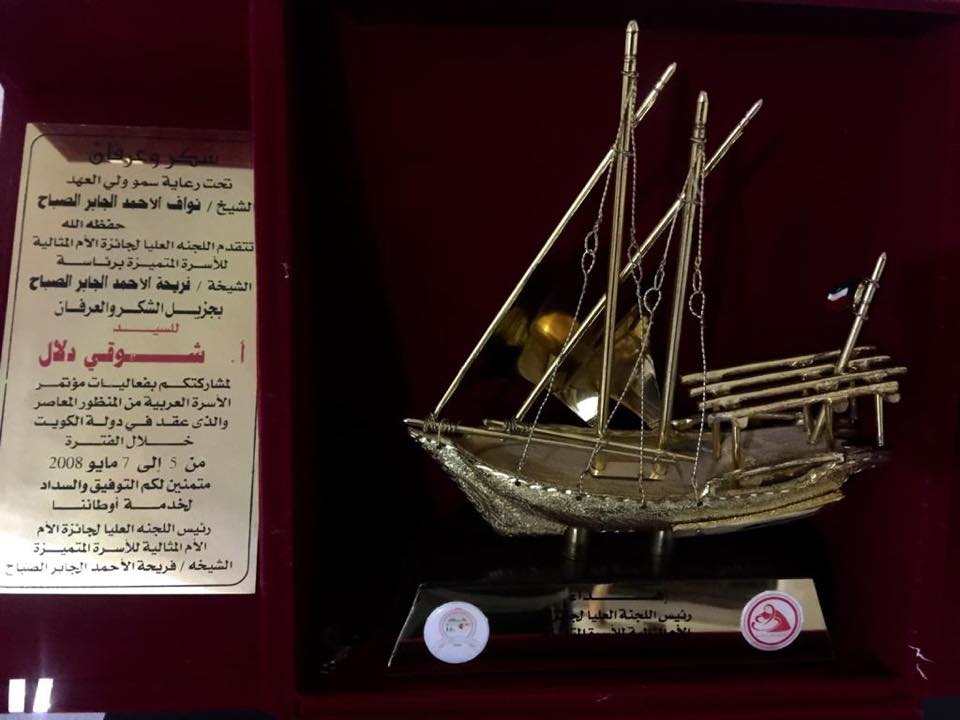 شكر وعرفان
تحت رعاية سمو ولي العهد
الشيخ / نواف الاحمد الجابر الصباح
حفظه الله
تتقدم اللجنه العليا لجائزة الأم المثالية
للأسرة المتميزة برئاسة
الشيخة / فريحة الاحمد الجابر الصباح
بجزيل الشكر والعرفان
للسيد
أ. شوقي دلال
لمشاركتكم بفعاليات مؤتمر
الأسرة العربية من المنظور المعاصر
والذى عقد في دولة الكويت
خلال الفترة
من 5 إلى 7 مايو 2008
متمنين لكم التوفيق والسداد
لخدمة أوطاننا
رئيس اللجنه العليا لجائزة الأم
الأم المثالية للأسرة المتميزة
الشيخه / فريحة الأحمد الجابر الصباح
إهداء
رئيس اللجنة العليا لجائزة
الأم المثالية للأسرة